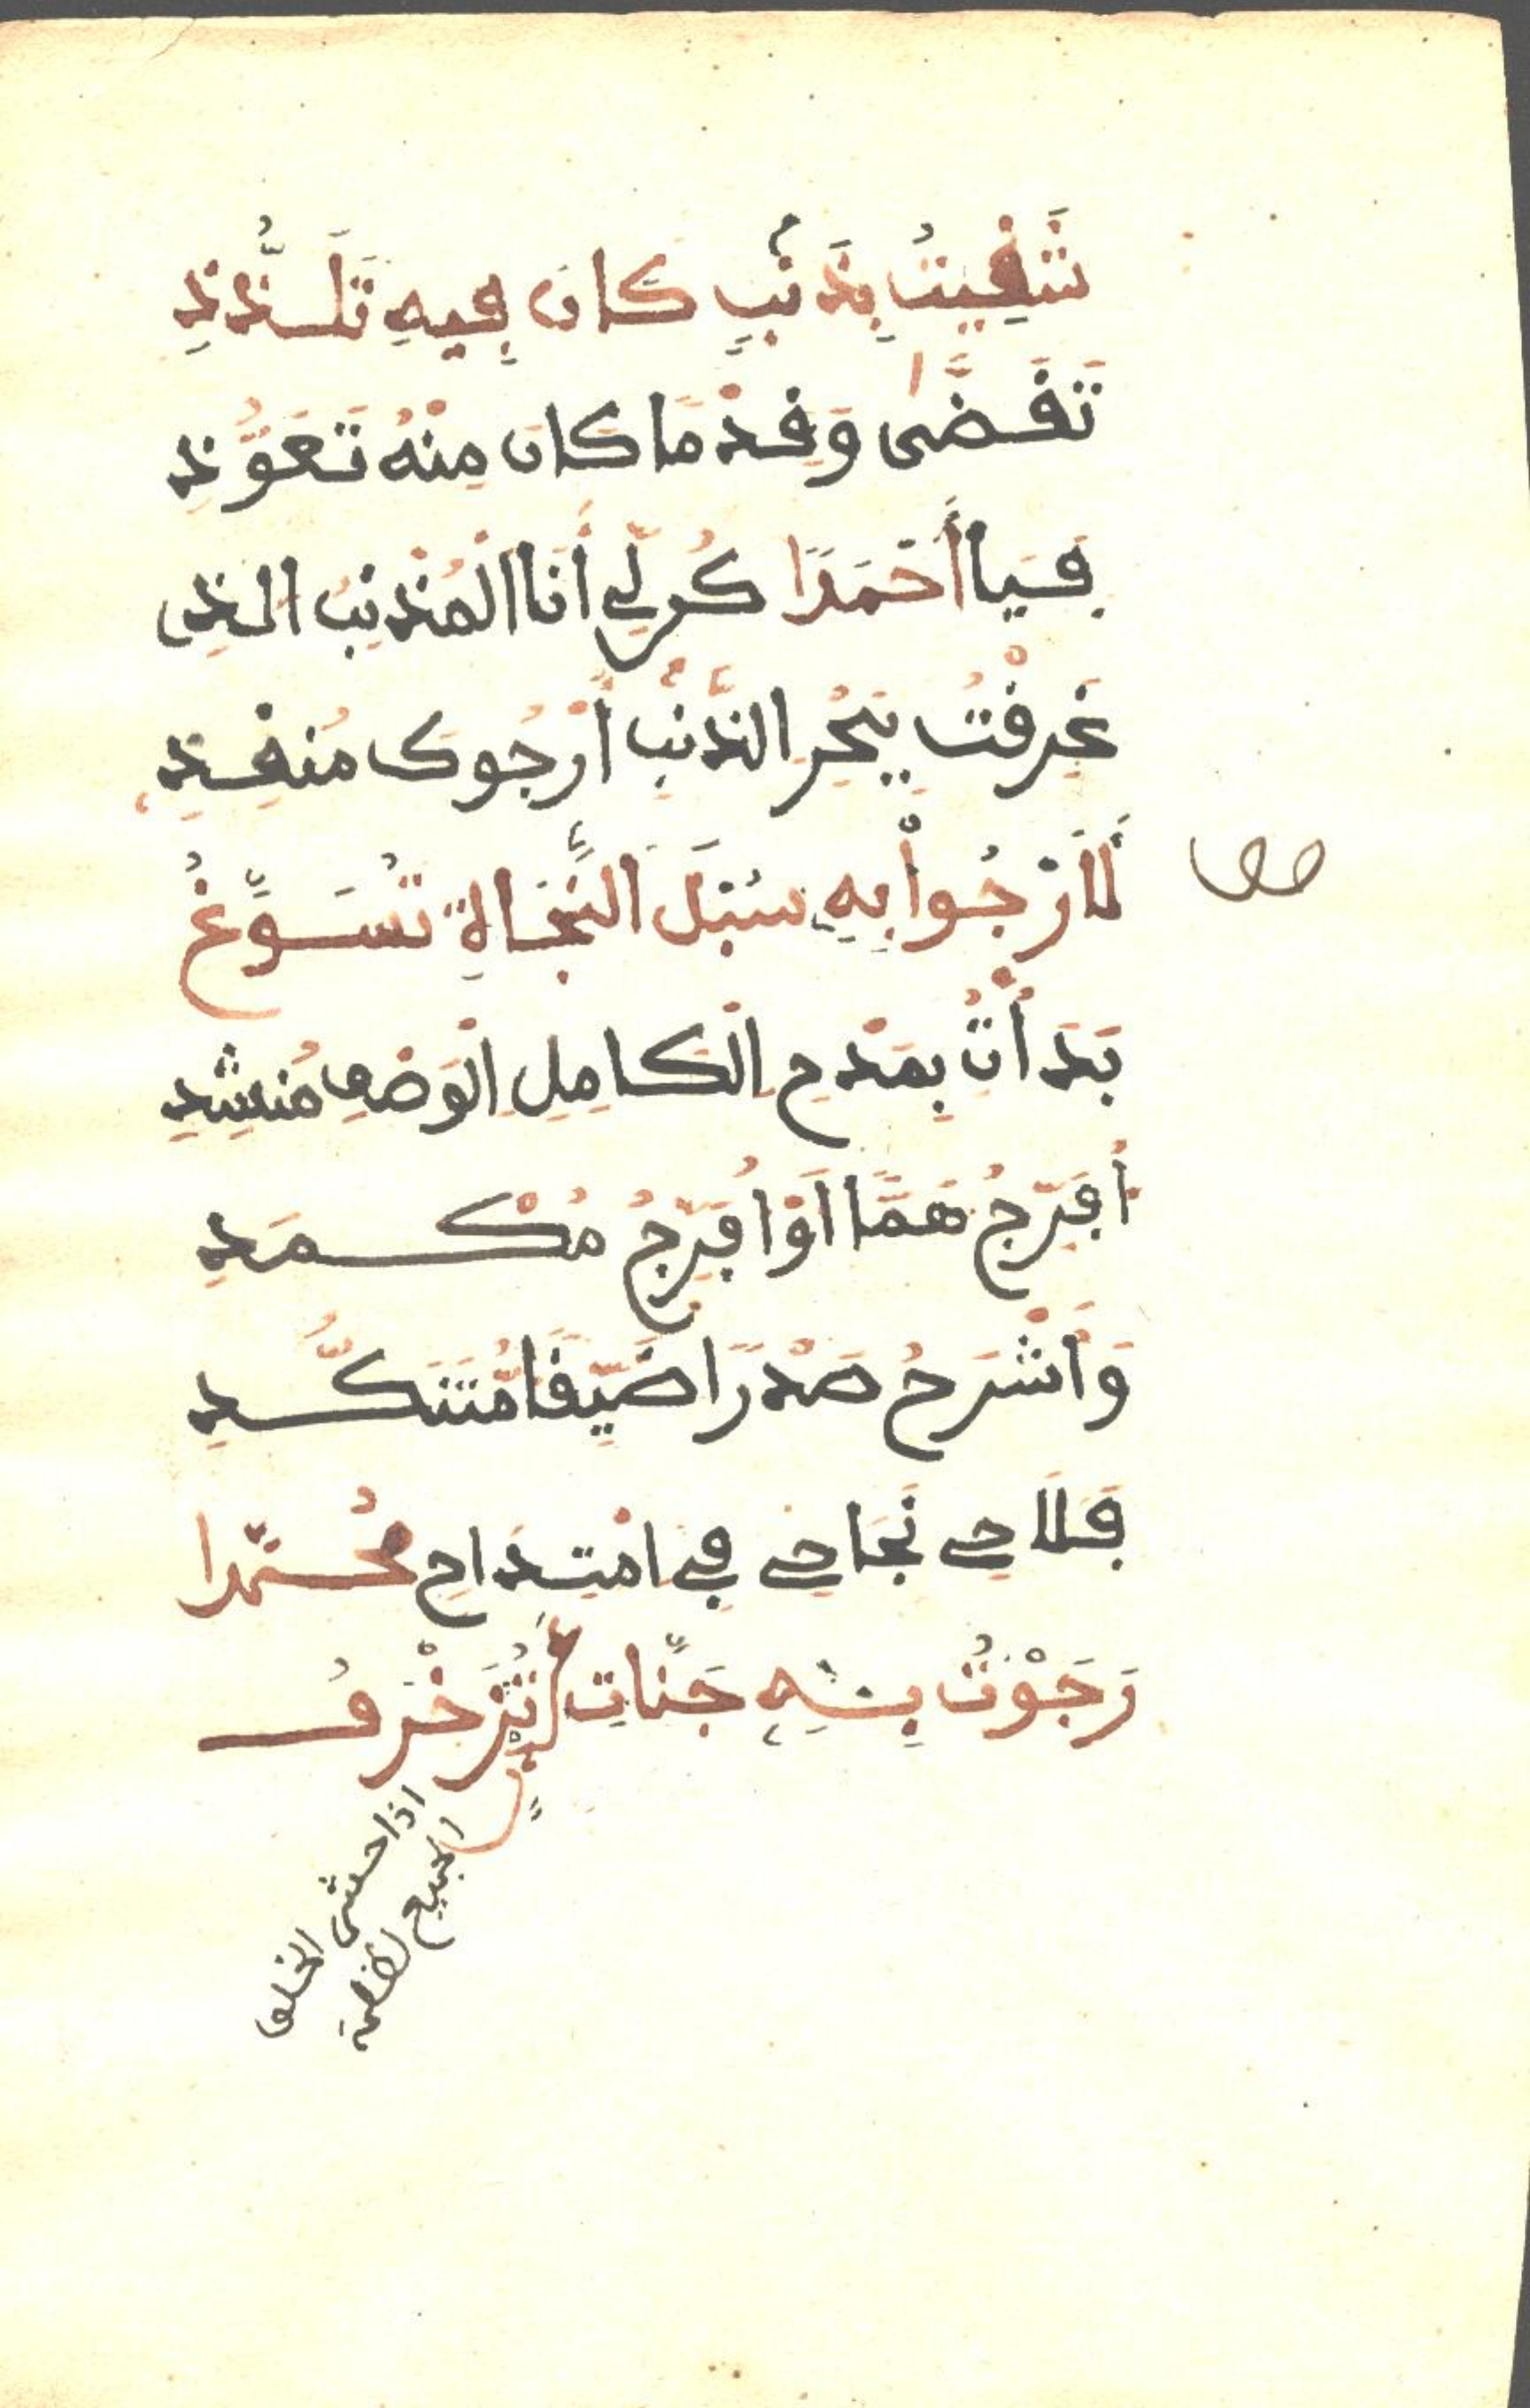 شَقِيتُ بِذَنْبٍ كَانَ فِيهِ تَلَذُّذِ
تَقَضَّى وَقِدْمًا كَانَ مِنْهُ تَعَوُّذِ
فَيَا أَحْمَدًا كُن لِّي أَنَا الْمُذْنِبُ الذِي
غَرِقْتُ بِبَحْرِ الذَّنْبِ أَرْجُوكَ مُنقِذِ
لَأَرْجُواْ بِهِ سُبْلَ النَّجَاةِ تُسَوِّغُ
بَدَأْتُ بِمَدْحِ الْكَامِلِ الْوَصْفِ مُنشِدِ
أُفَرِّجُ هَمًّا أَوْ أُفَرِّجُ مُكْمَدِ
وَأَشْرَحُ صَدْرًا ضَيِّقًا مُّتَنَكِّدِ
فَلَاحِي نَجَاحِي فِي امْتِدَاحِ مُحَمَّدا
رَجَوْتُ بِهِ جَنَّاتِ تُزَخْرَفُ
اذا حشر الخلق
الجميع